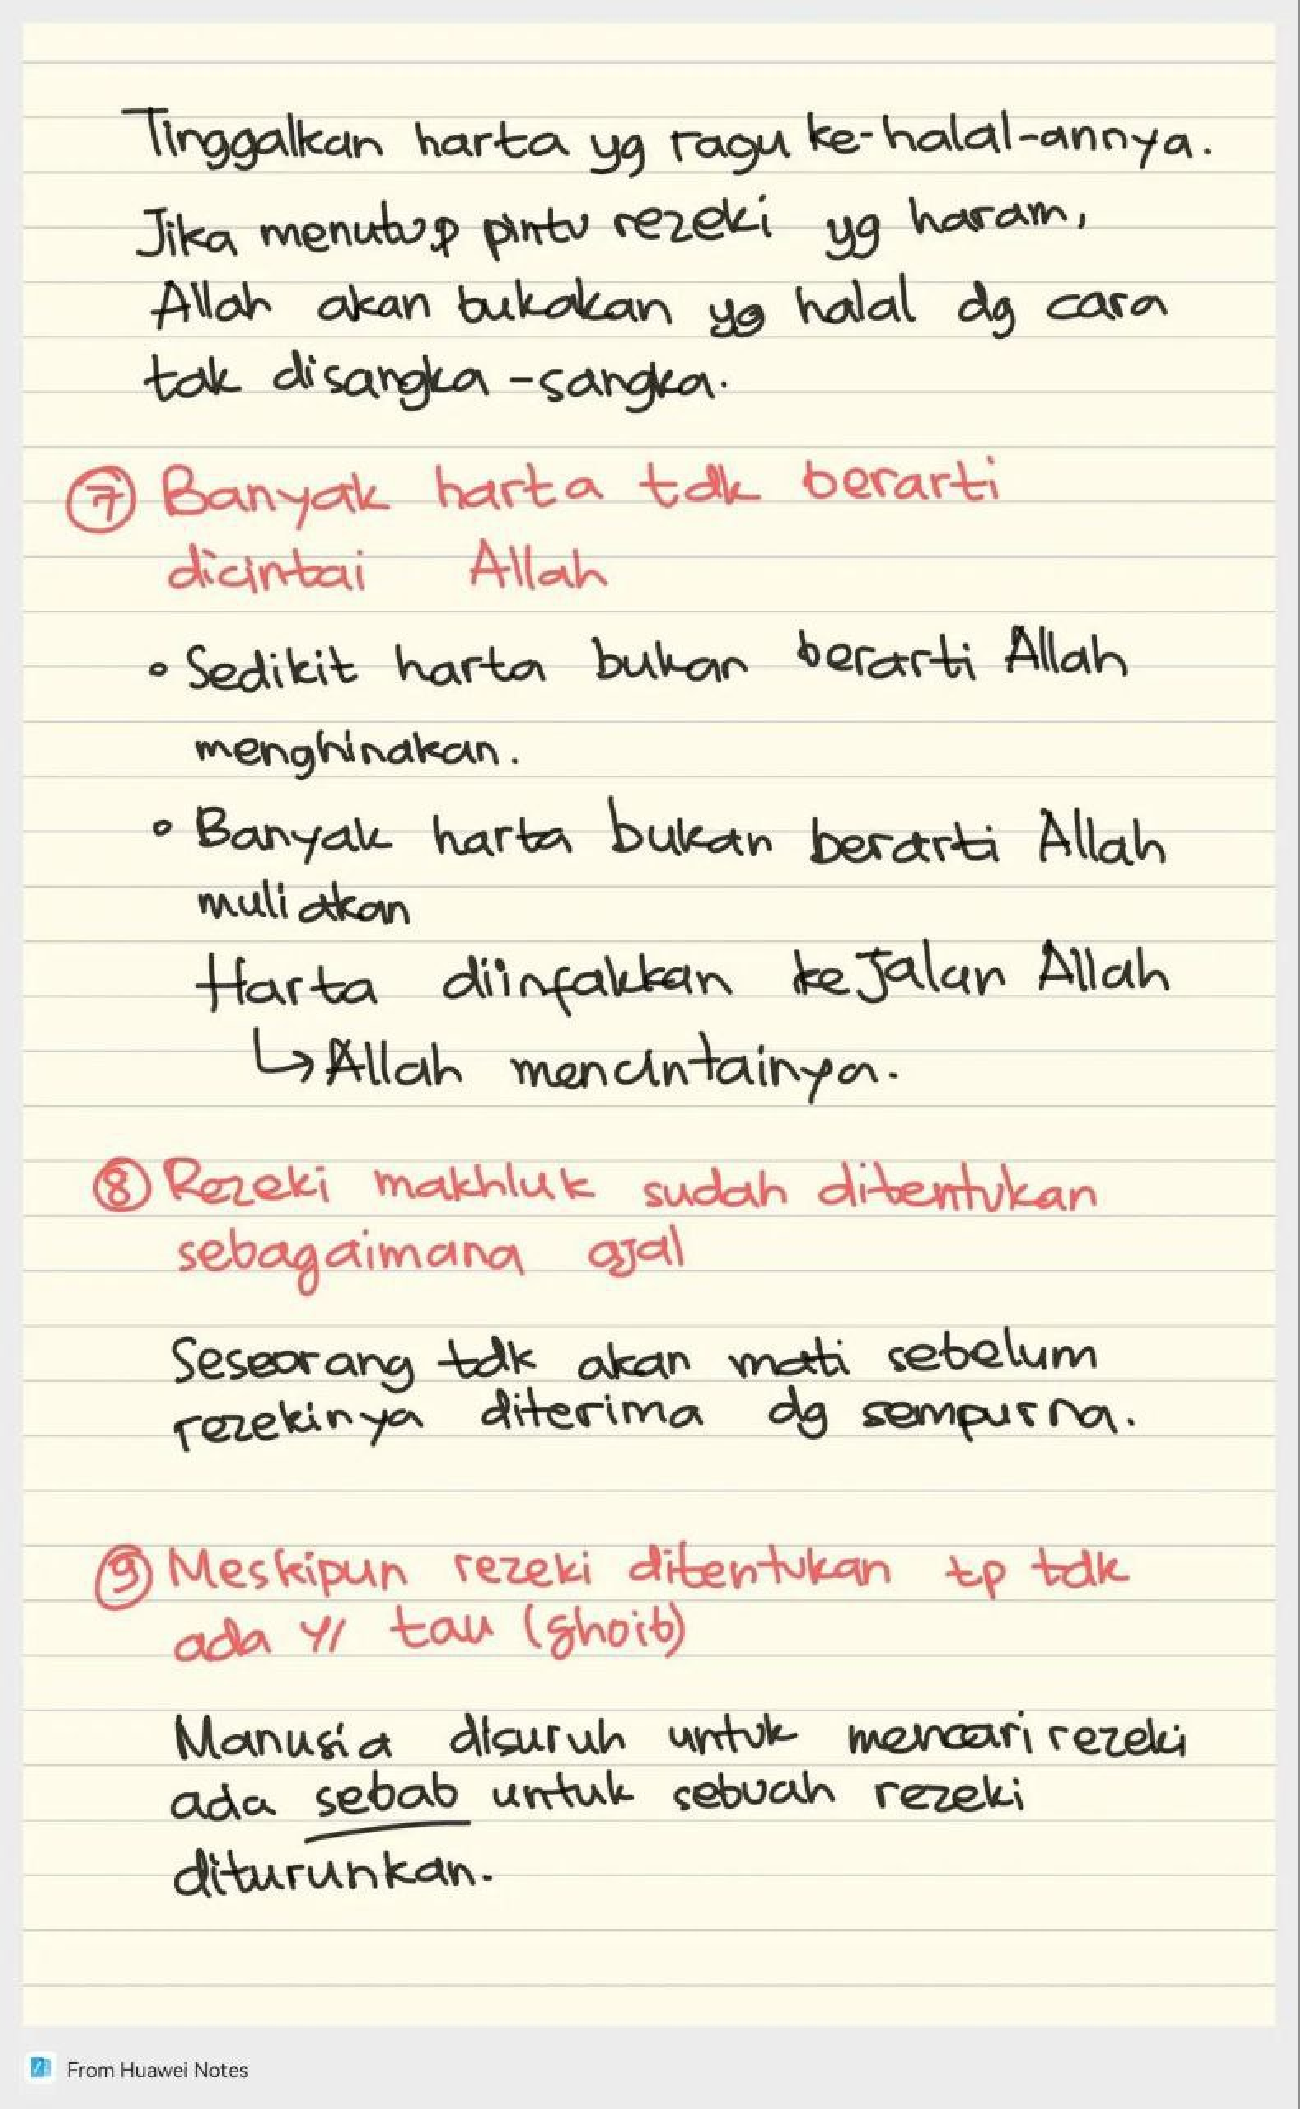 Tinggalkan harta yg ragu ke-halal-annya.
Jika menutup pintu rezeki yg haram,
Allah akan bukakan yg halal dg cara
tak disangka-sangka.
⑦ Banyak harta tdk berarti
dicintai Allah
• Sedikit harta bukan berarti Allah
menghinakan.
• Banyak harta bukan berarti Allah
muliakan
Harta diinfakkan ke Jalan Allah
↳ Allah mencintainya.
⑧ Rezeki makhluk sudah ditentukan
sebagaimana ajal
Seseorang tdk akan mati sebelum
rezekinya diterima dg sempurna.
⑨ Meskipun rezeki ditentukan tp tdk
ada y/ tau (ghoib)
Manusia disuruh untuk mencari rezeki
ada sebab untuk sebuah rezeki
diturunkan.
From Huawei Notes